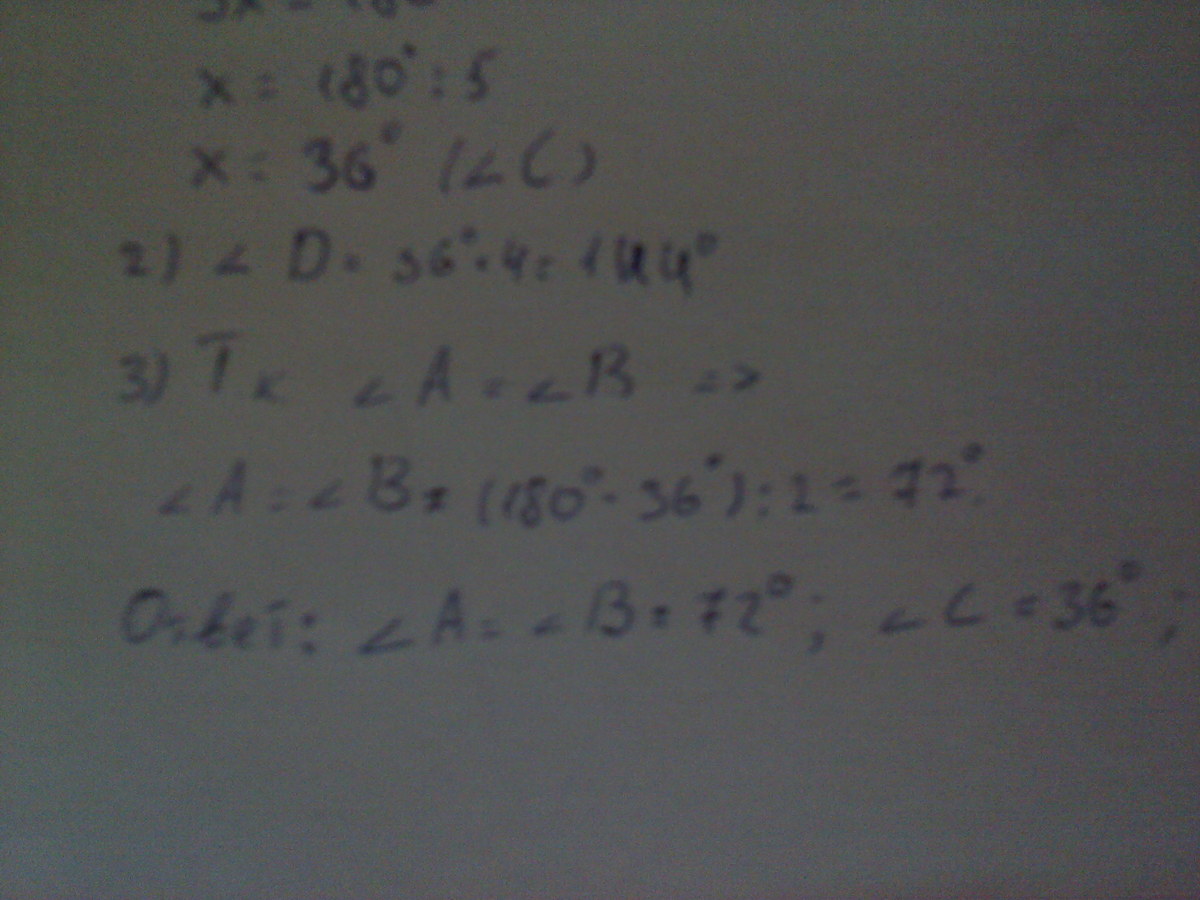 5x = 180
x = 180° : 5
x = 36° (∠C)
2) ∠D = 36° · 4 = 144°
3) Тк ∠A = ∠B =>
∠A = ∠B = (180° - 36°) : 2 = 72°.
Ответ: ∠A = ∠B = 72°; ∠C = 36°;